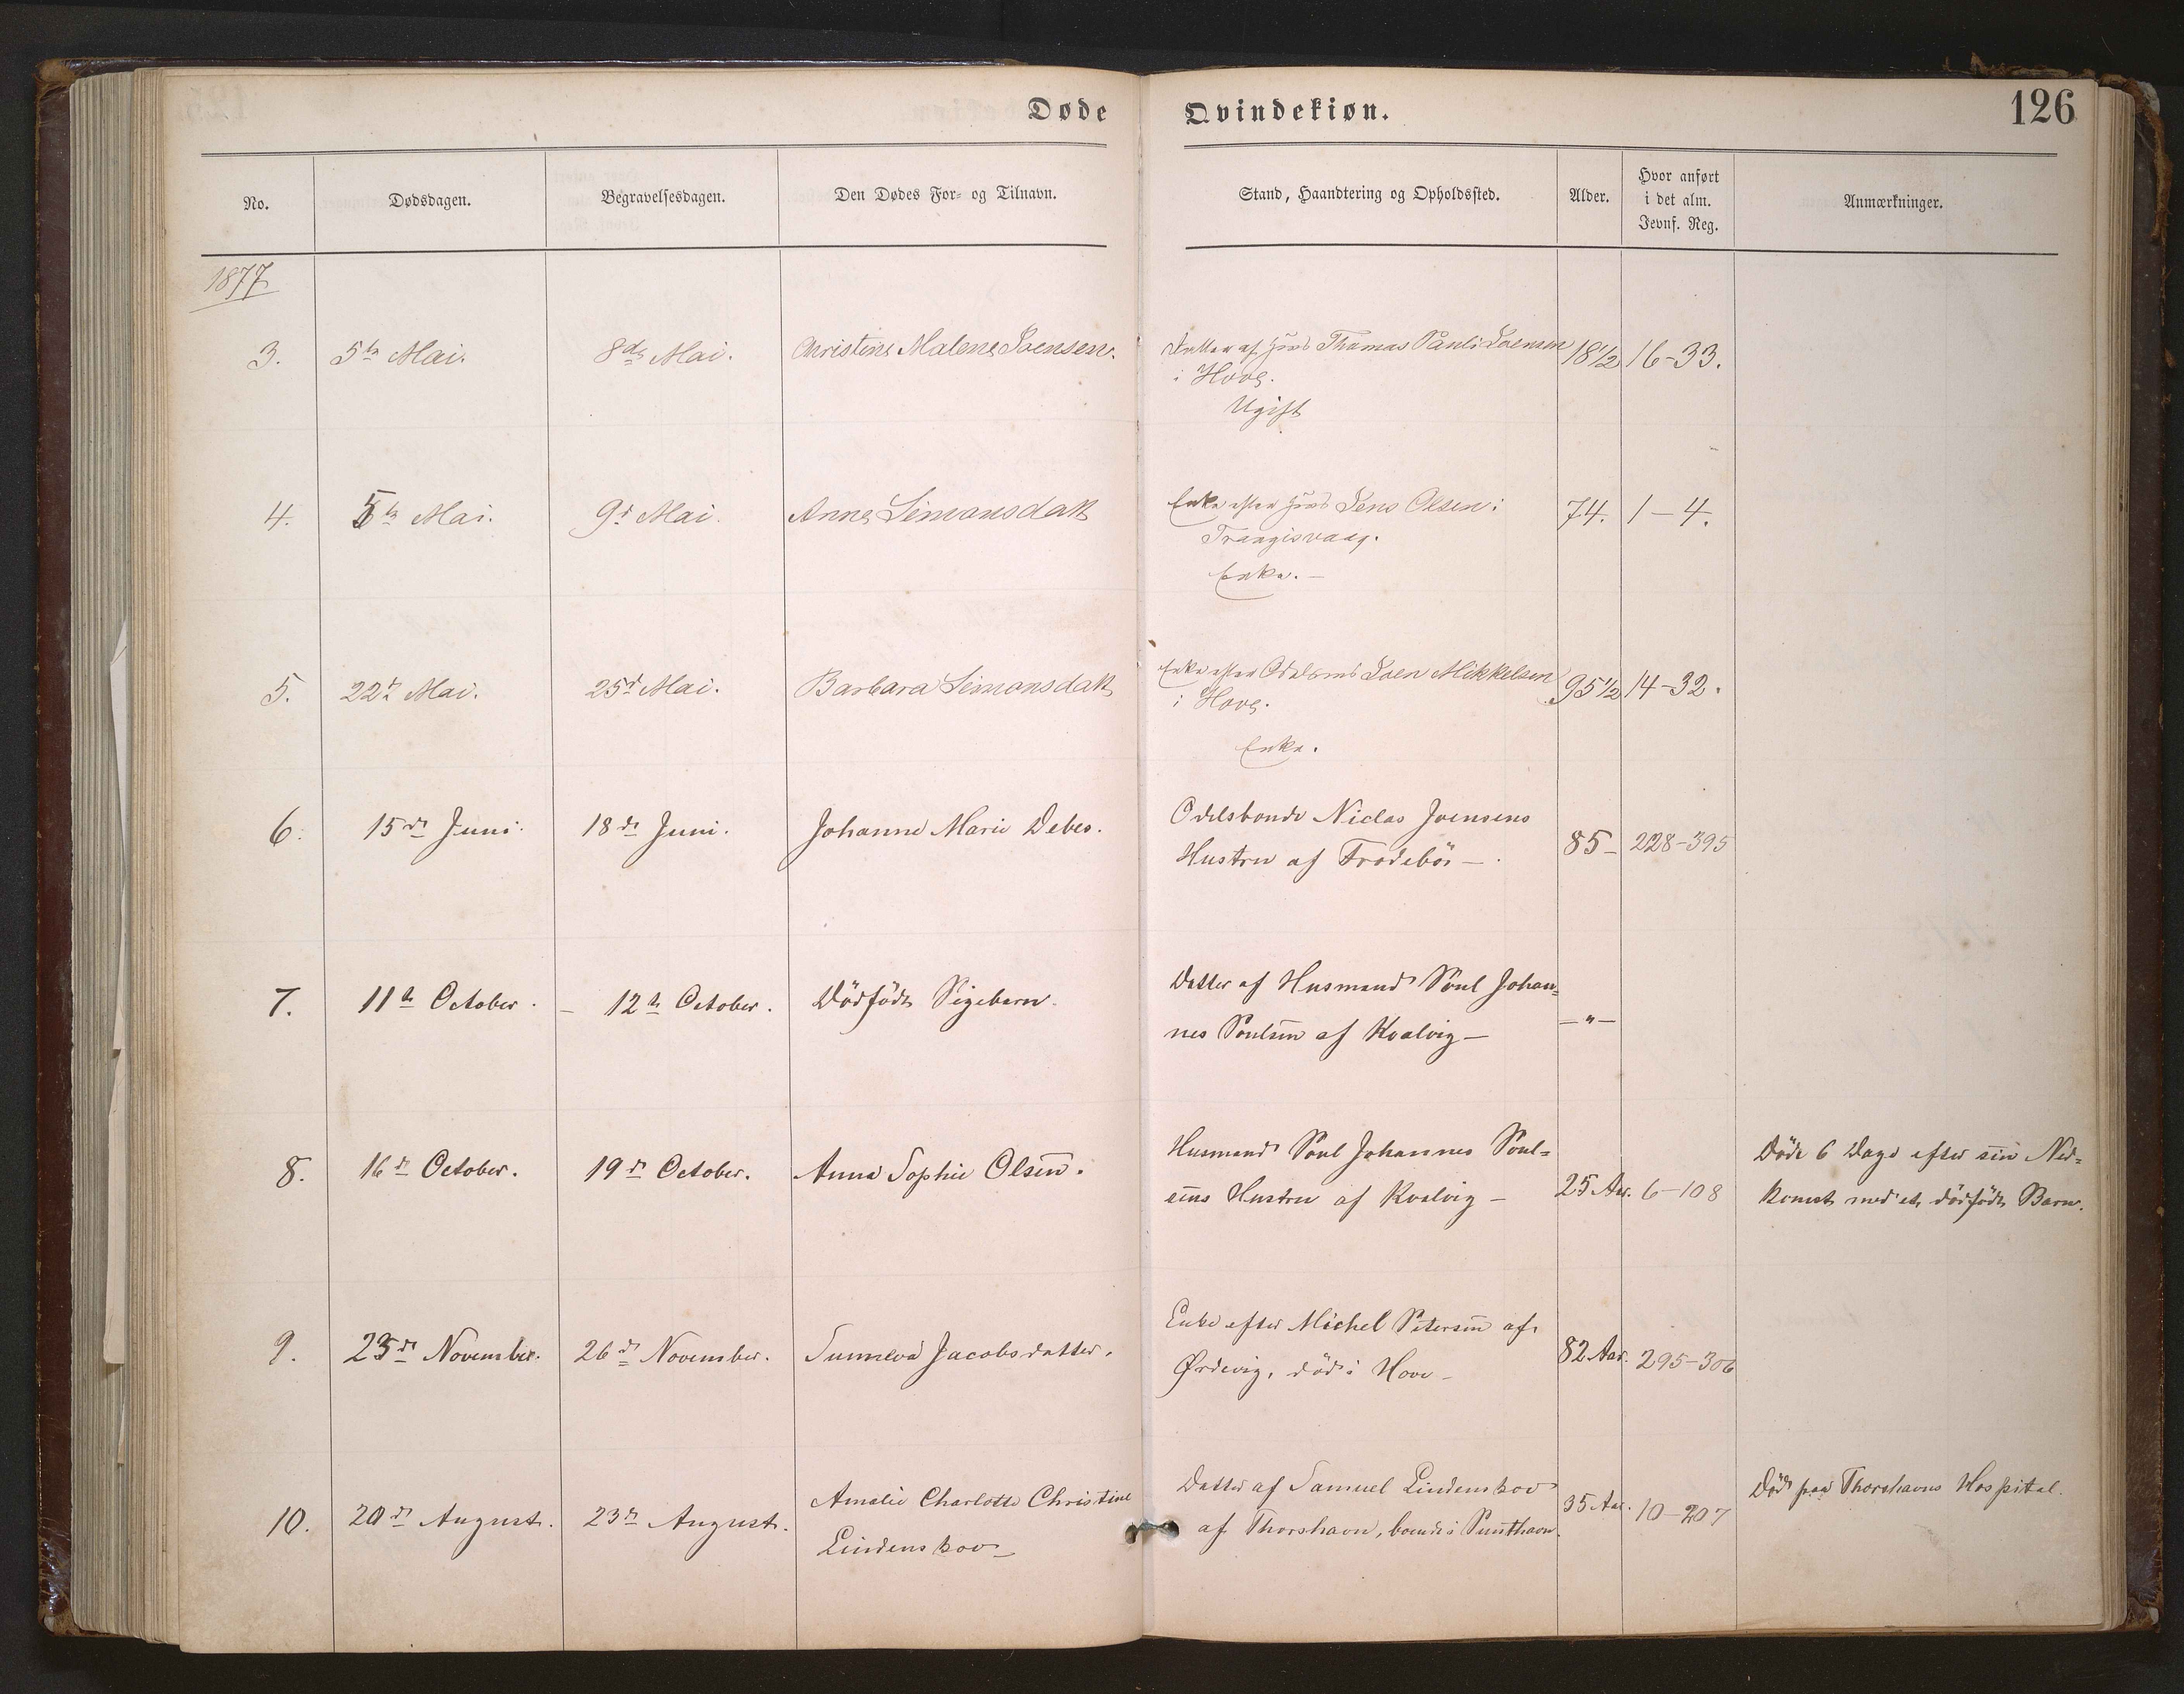 Døde Qvindekiøn. 126
No. Dødsdagen. Begravelsesdagen. Den Dødes For- og Tilnavn. Stand, Haandtering og Opholdssted. Alder. Hvor anført i det alm. Jevnf. Reg. Anmærkninger.
1877
3. 5te Mai. 8de Mai. Christine Malene Joensen. Datter af Thomas Pauli Joensen 18½ 16-33.
i Hove.
Ugift
4. 5te Mai. 9d Mai. Anne Simonsdatt Enke efter Jens Olsen i 74. 1-4.
Trangisvaag.
Enke. —
5. 22d Mai. 25d Mai. Barbara Simonsdatt Enke efter Joen Mikkelsen 95½ 14-32.
i Hove.
Enke.
6. 15de Juni. 18de Juni. Johanne Marie Debes. Odelsbonde Niclas Joensens
Hustru af Frodebös — . 85- 228-395
7. 11te October. — 12te October. Dödfödt Pigebarn. Datter af Husmand Poul Johan=
nes Poulsen af Kvalvig — —"—
8. 16de October. 19de October. Anna Sophie Olsen. Husmand Poul Johannes Poul=
sens Hustru af Kvalvig — 25 Aar. 6-108
Döde 6 Dage efter sin Ned=
komst med et dödfödt Barn.
9. 23de November. 26de November. Sunneva Jacobsdatter. Enke efter Michel Petersen af
Ørdevig, död i Hove — 82 Aar. 295-306
10. 20de August. 23de August. Amalie Charlotte Christine
Lindenskov — Datter af Samuel Lindenskov
af Thorshavn, boende i Punthavn. 35 Aar. 10-207
Död paa Thorshavns Hospital.